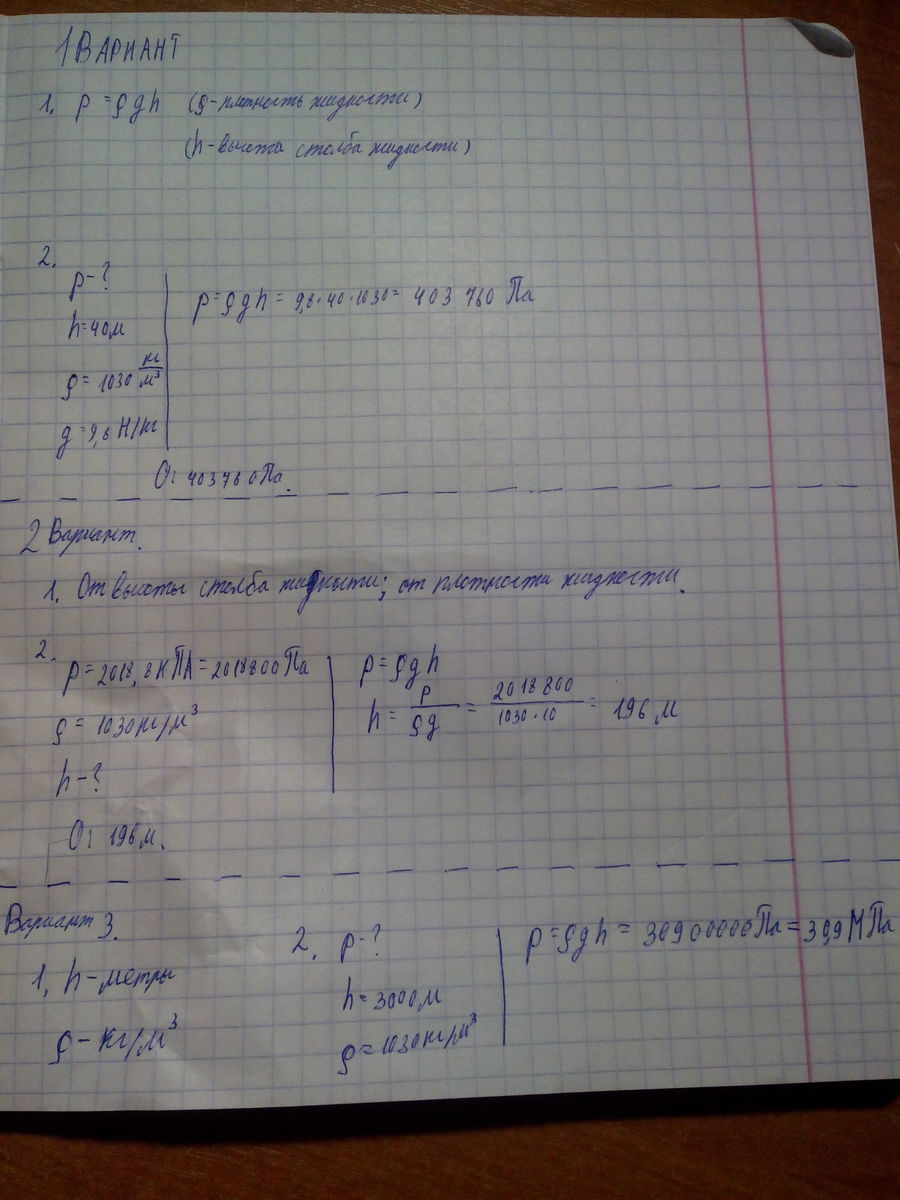 1 ВАРИАНТ
1. p = ρgh (ρ-плотность жидкости)
(h-высота столба жидкости)
2.
p-?
h=40м
ρ= 1030 кг/м³
g=9,8 Н/кг
p=ρgh = 9,8·40·1030= 403 760 Па
О: 403760Па.
2 Вариант.
1. От высоты столба жидкости; от плотности жидкости.
2.
p=2018,8кПА=2018800Па
ρ= 1030кг/м³
h-?
p=ρgh
h= p/ρg = 2018 800/1030·10 = 196 м
О: 196м.
Вариант 3.
1, h-метры
ρ-кг/м³
2, p-?
h=3000м
ρ=1030кг/м³
p=ρgh = 30900000Па=30,9МПа